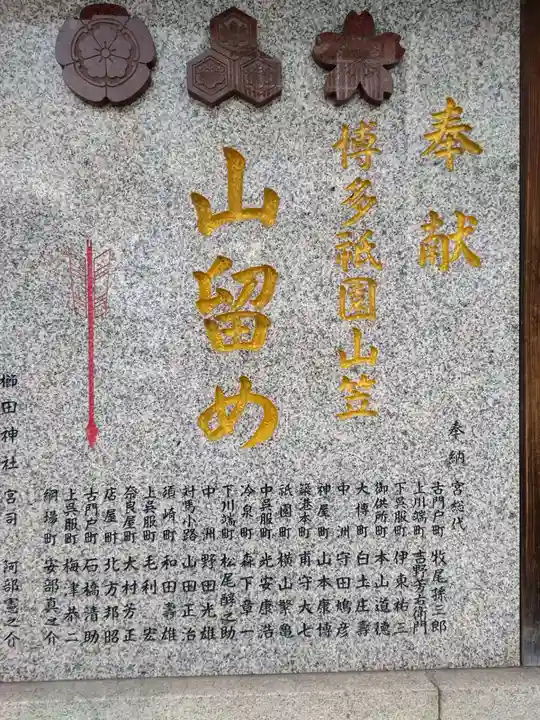 奉献
博多祇園山笠
山留め
奉納
宮総代
古門戸町 牧尾孫三郎
上川端町 吉野芳兵衛門
下呉服町 伊東祐三
御供所町 本山道徳
大博町 白土庄壽
中洲 守田鳩彦
神屋町 山本康博
築港本町 甫守大七
祇園町 横山繁亀
中呉服町 光安康浩
冷泉町 森下章一
下川端町 松尾醇之助
中洲 野田光雄
対馬小路 山田正治
須崎町 和田壽雄
上呉服町 毛利宏
奈良屋町 大村芳正
店屋町 北方邦昭
古門戸町 石橋清助
上呉服町 梅津恭二
綱場町 安部真之介
櫛田神社 宮司 阿部憲之介